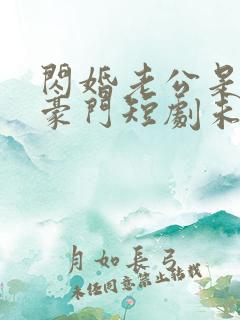 閃婚老公是
豪門短劇未
月如長弓
未經同意禁止轉載